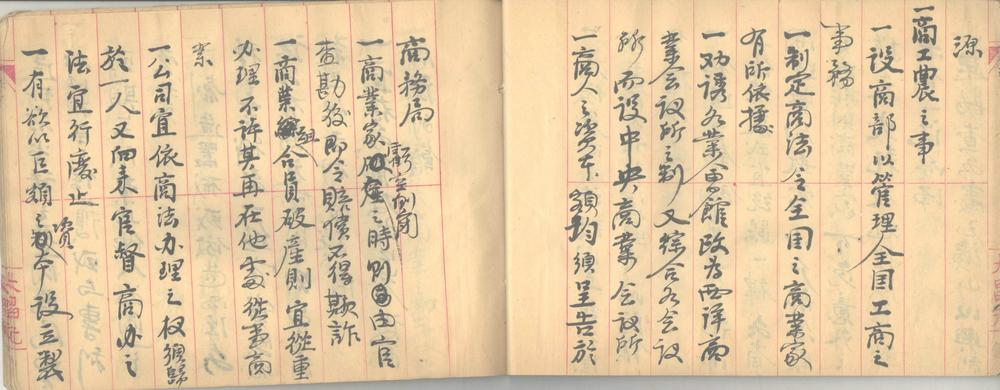 源
一商工農之事
一設商部以管理全国工商之
事務
一制定商法令全国之商業家
有所依據
一劝誘各業會館改為西洋商
業会议所之制又綜合各会议
所而设中央商業会议所
一商人之资本額均須呈告於
商務局
一商業家破産之時則由官
虧空倒閉
查勘後即令賠償不得欺詐
一商業組合員破産則宜從重
办理不許其再在他處從事商
業
一公司宜依商法办理之权须歸
於一人又向来官督商办之
法宜行廢止
一有欲以巨額之资本设立製